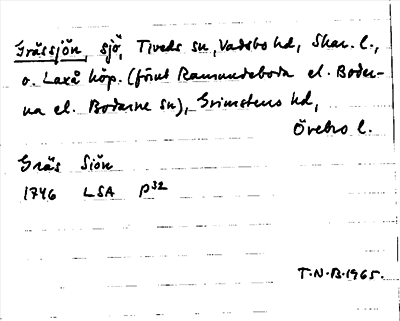 Grässjön, sjö, Tiveds sn, Vadsbo hd, Skar. l.,
o. Laxå köp. (förut Ramundeboda el. Boder-
na el. Bodarne sn), Grimstens hd,
Örebro l.
Gräs Siön
1746 LSA P32
T.N.B. 1965.